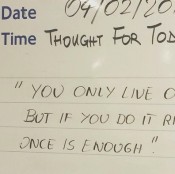 Date 04/02/20
Time THOUGHT FOR TOD
" YOU ONLY LIVE O
BUT IF YOU DO IT RI
ONCE IS ENOUGH ".